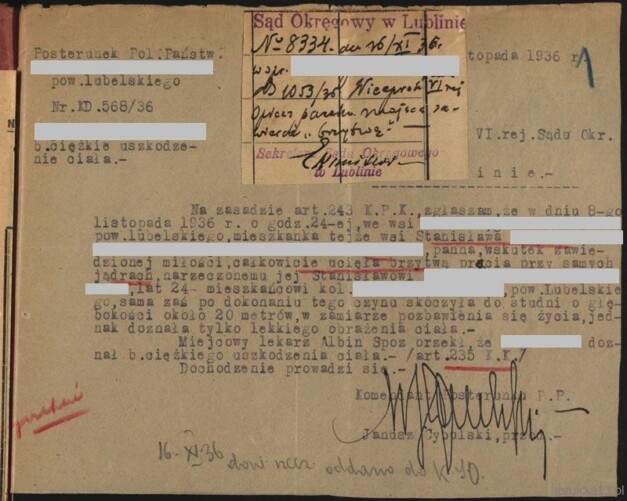 Posterunek Pol.Państw.
pow.lubelskiego
Nr.KD.568/36
b.ciężkie uszkodze-
nie ciała.-
Sąd Okręgowy w Lublinie
No 8334 dn 26/XI 36.
w spr.
Ds 1053/36 Wiceprok VI rej
Oprócz paragrafu
"brzytwę"
Sekretarz Sądu Okręgowego
w Lublinie
topada 1936 r.
1
VI.rej.Sądu Okr.
inie.-
Na zasadzie art.243 K.P.K.,zgłaszam,że w dniu 8-go
listopada 1936 r. o godz.24-ej,we wsi
pow.lubelskiego,mieszkanka tejże wsi Stanisława
,panna,wskutek zawie-
dzionej miłości,całkowicie ucięła brzytwą prącia przy samych
jądrach,narzeczonemu jej Stanisławowi
,lat 24- mieszkańcowi kol. ,pow.Lubelskie
go,sama zaś po dokonaniu tego czynu skoczyła do studni o głę-
bokości około 20 metrów,w zamiarze pozbawienia się życia,jed-
nak doznała tylko lekkiego obrażenia ciała.-
Miejscowy lekarz Albin Spoz orzekł,że doz-
nał b.ciężkiego uszkodzenia ciała.- /art.235 K.K./
Dochodzenie prowadzi się.-
Komendant Posterunku P.P.
Janusz Cybulski,przod.-
16. XI 36
oddano do